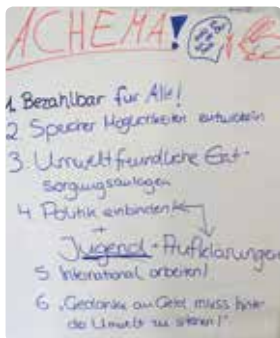 ACHEMA!
1. Bezahlbar für Alle!
2 Speicher Möglichkeiten entwickeln
3. Umweltfreundliche Ent-
sorgungsanlagen
4 Politik einbinden!
+
Jugend-Aufklärungen
5 International arbeiten!
6 „Gedanke an Geld muss hinter
der Umwelt zu stehen!"